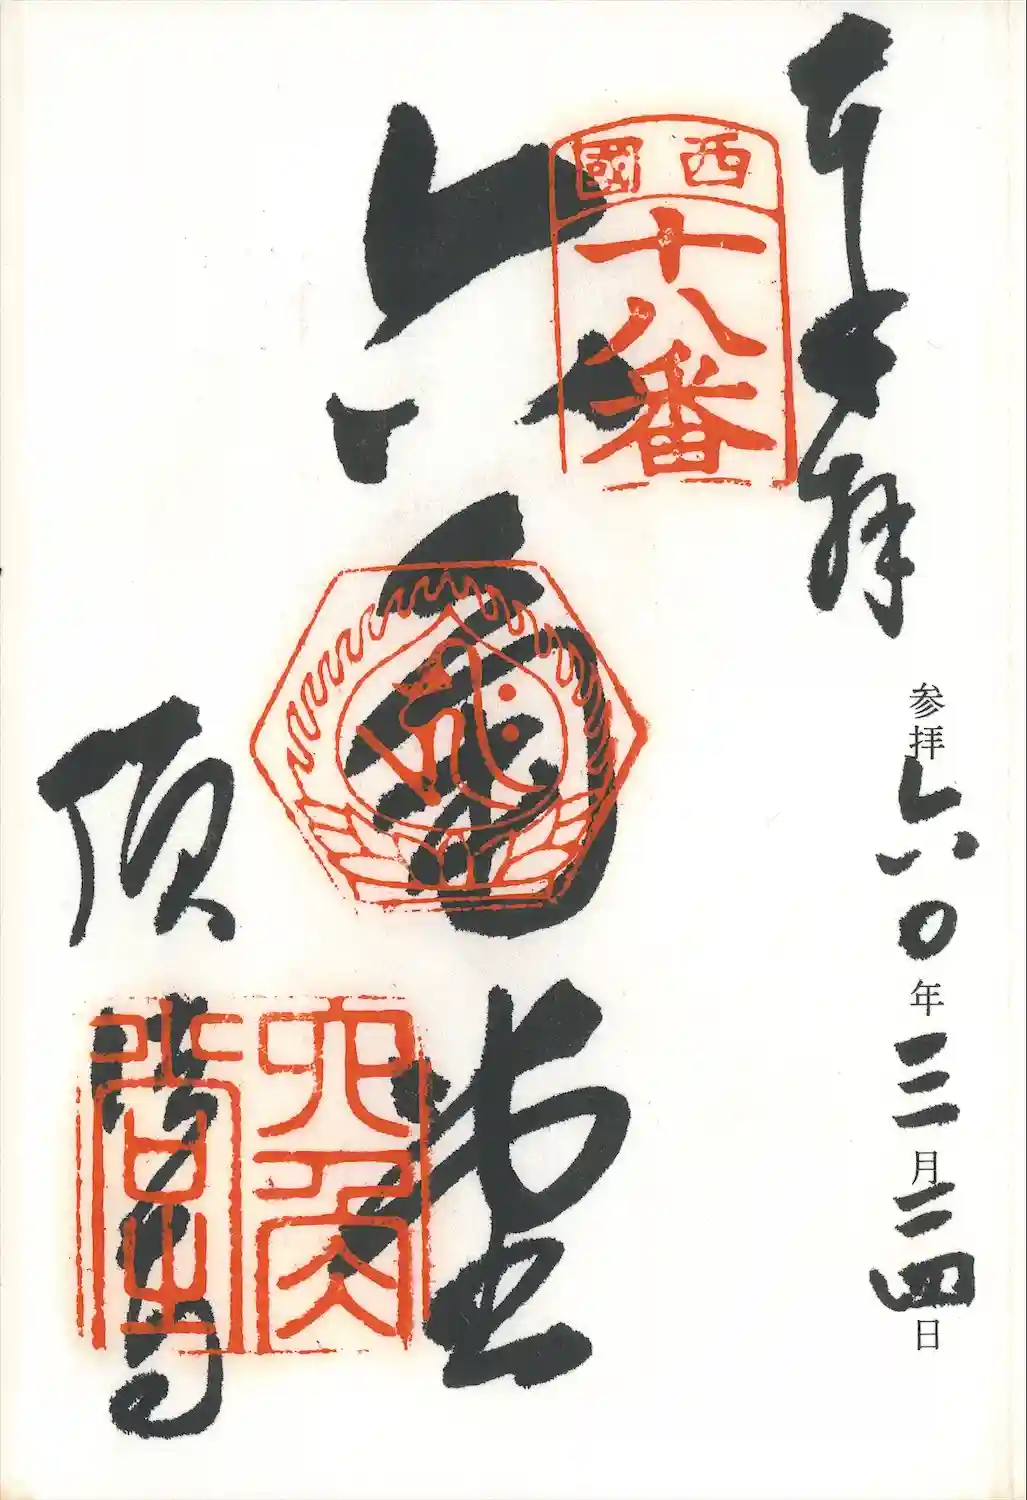 奉拝
参拝六〇年三月二四日
西國
十八番
六角堂
六角堂
頂法寺